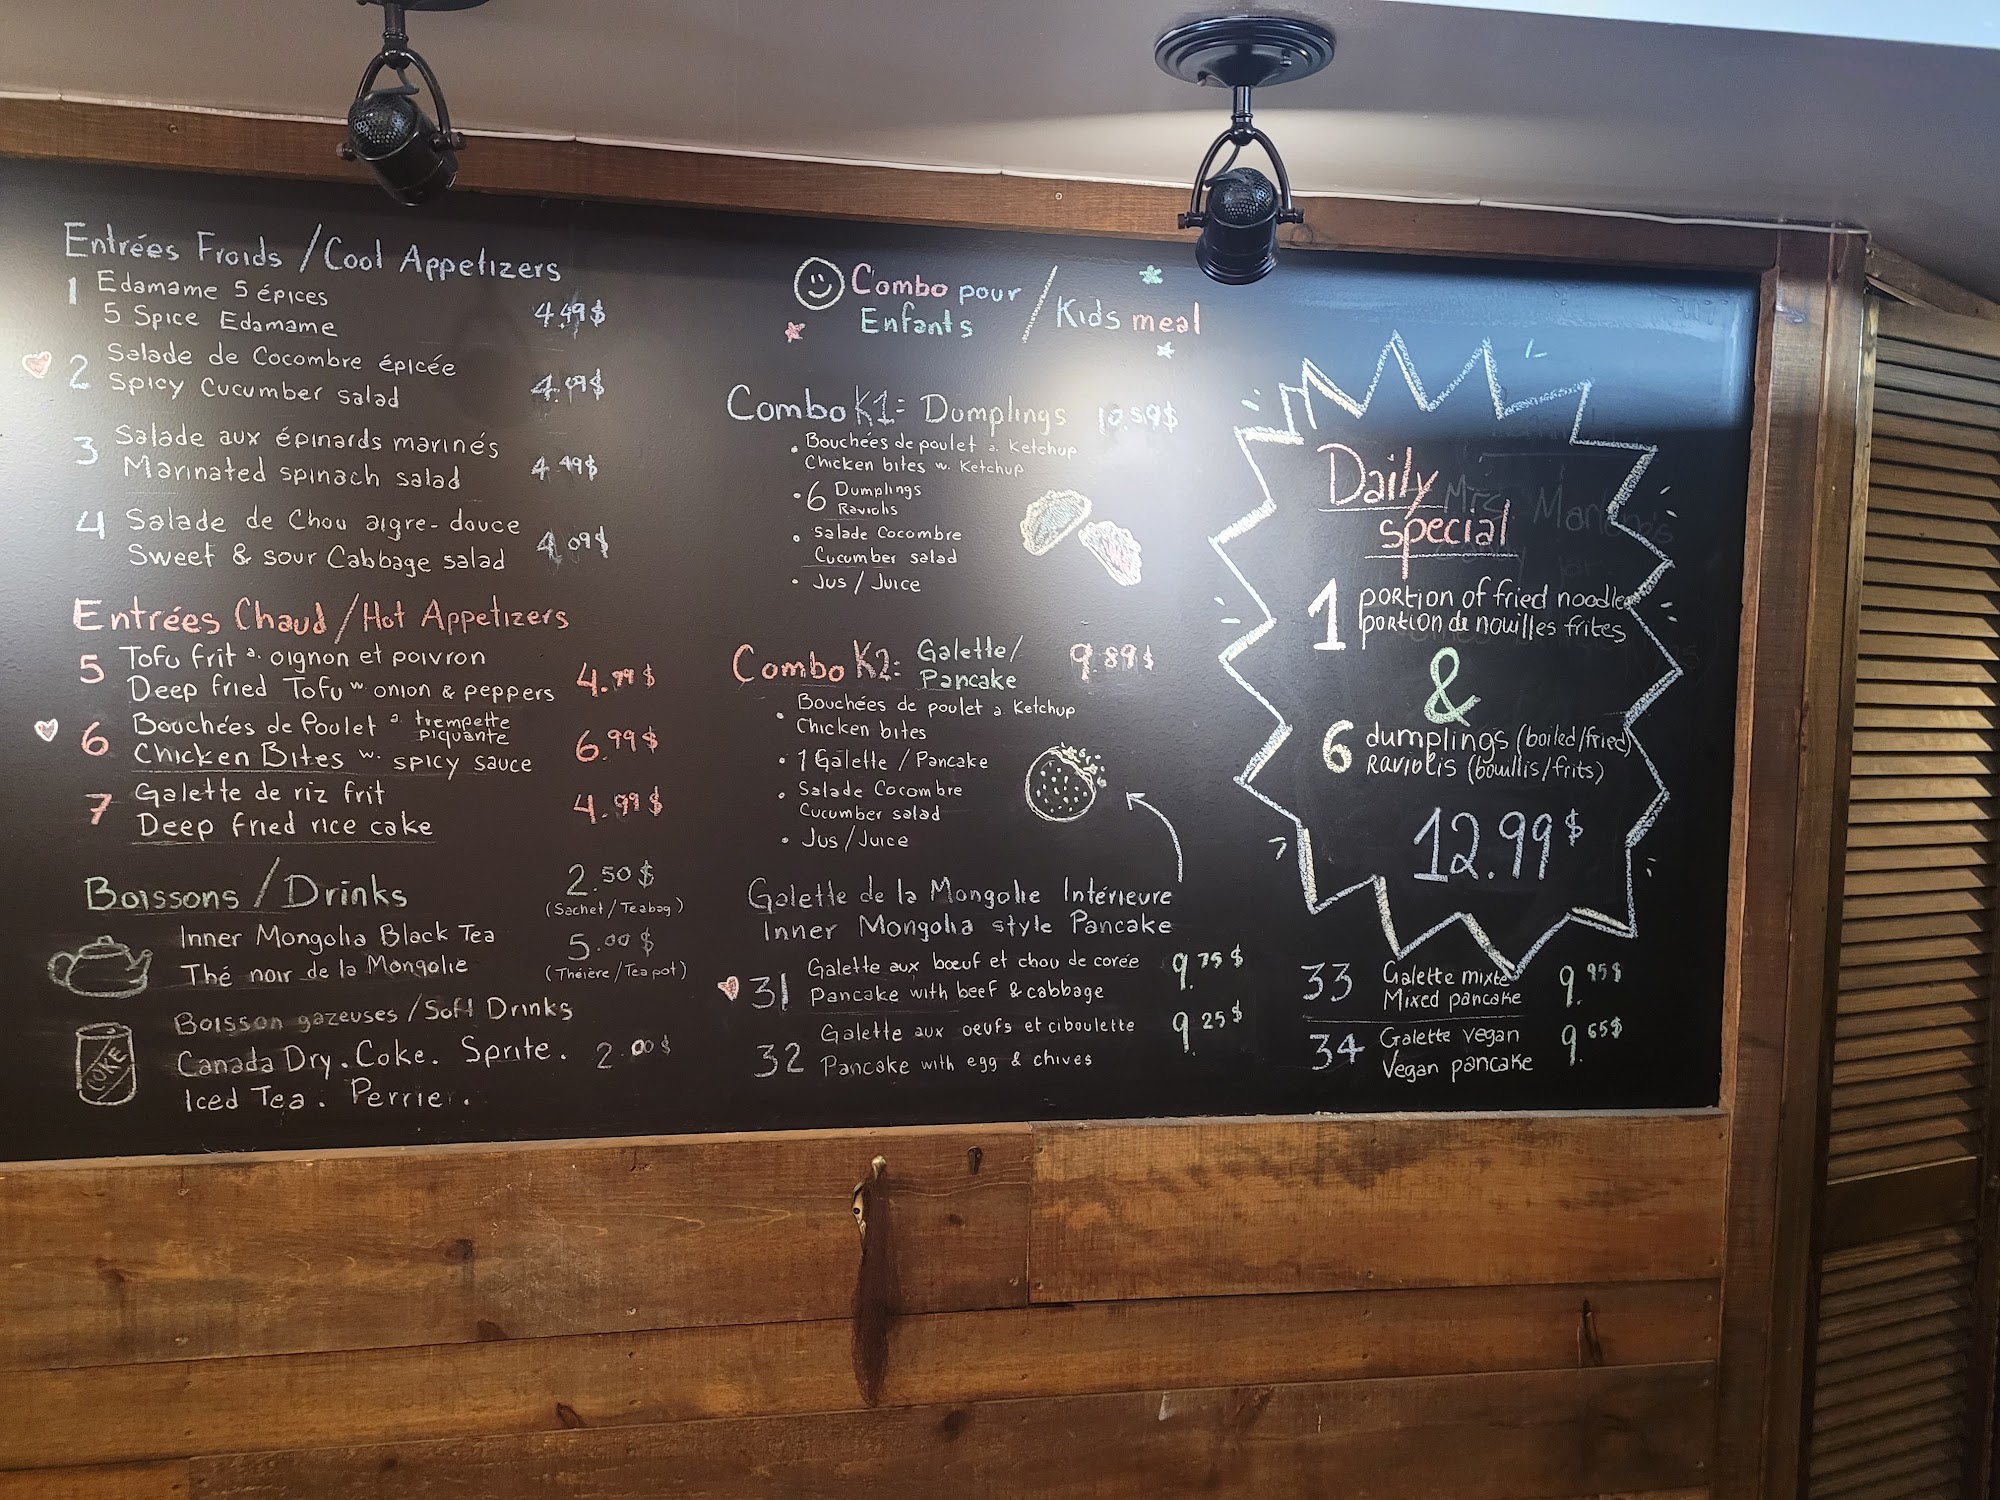 Entrées Froids / Cool Appetizers
1 Edamame 5 épices
5 Spice Edamame 4.49$
2 Salade de Cocombre épicée
Spicy Cucumber salad 4.09$
3 Salade aux épinards marinés
Marinated spinach salad 4.49$
4 Salade de Chou aigre-douce
Sweet & sour Cabbage salad 4.09$
Entrées Chaud / Hot Appetizers
5 Tofu frit a. oignon et poivron
Deep fried Tofu w. onion & peppers 4.99$
6 Bouchées de Poulet a trempette piquante
Chicken Bites w. spicy sauce 6.99$
7 Galette de riz frit
Deep fried rice cake 4.99$
Boissons / Drinks
2.50$
(Sachet/Teabag)
Inner Mongolia Black Tea
Thé noir de la Mongolie
5.00$
(Théière/Tea pot)
Boisson gazeuses / Soft Drinks
Canada Dry. Coke. Sprite. 2.00$
Iced Tea. Perrier.
COKE
Combo pour Enfants / Kids meal
Combo K1: Dumplings 10.59$
• Bouchées de poulet a. Ketchup
Chicken bites w. Ketchup
• 6 Dumplings
Raviolis
• Salade Cocombre
Cucumber salad
• Jus / Juice
Combo K2: Galette/ Pancake 9.89$
• Bouchées de poulet a Ketchup
Chicken bites
• 1 Galette / Pancake
• Salade Cocombre
Cucumber salad
• Jus / Juice
Galette de la Mongolie Intérieure
Inner Mongolia style Pancake
31 Galette aux bœuf et chou de corée
Pancake with beef & cabbage 9.75$
32 Galette aux oeufs et ciboulette
Pancake with egg & chives 9.25$
Daily
special
1 portion of fried noodles
portion de nouilles frites
&
6 dumplings (boiled/fried)
Raviolis (bouillis/frits)
12.99$
33 Galette mixte
Mixed pancake 9.95$
34 Galette vegan
Vegan pancake 9.65$